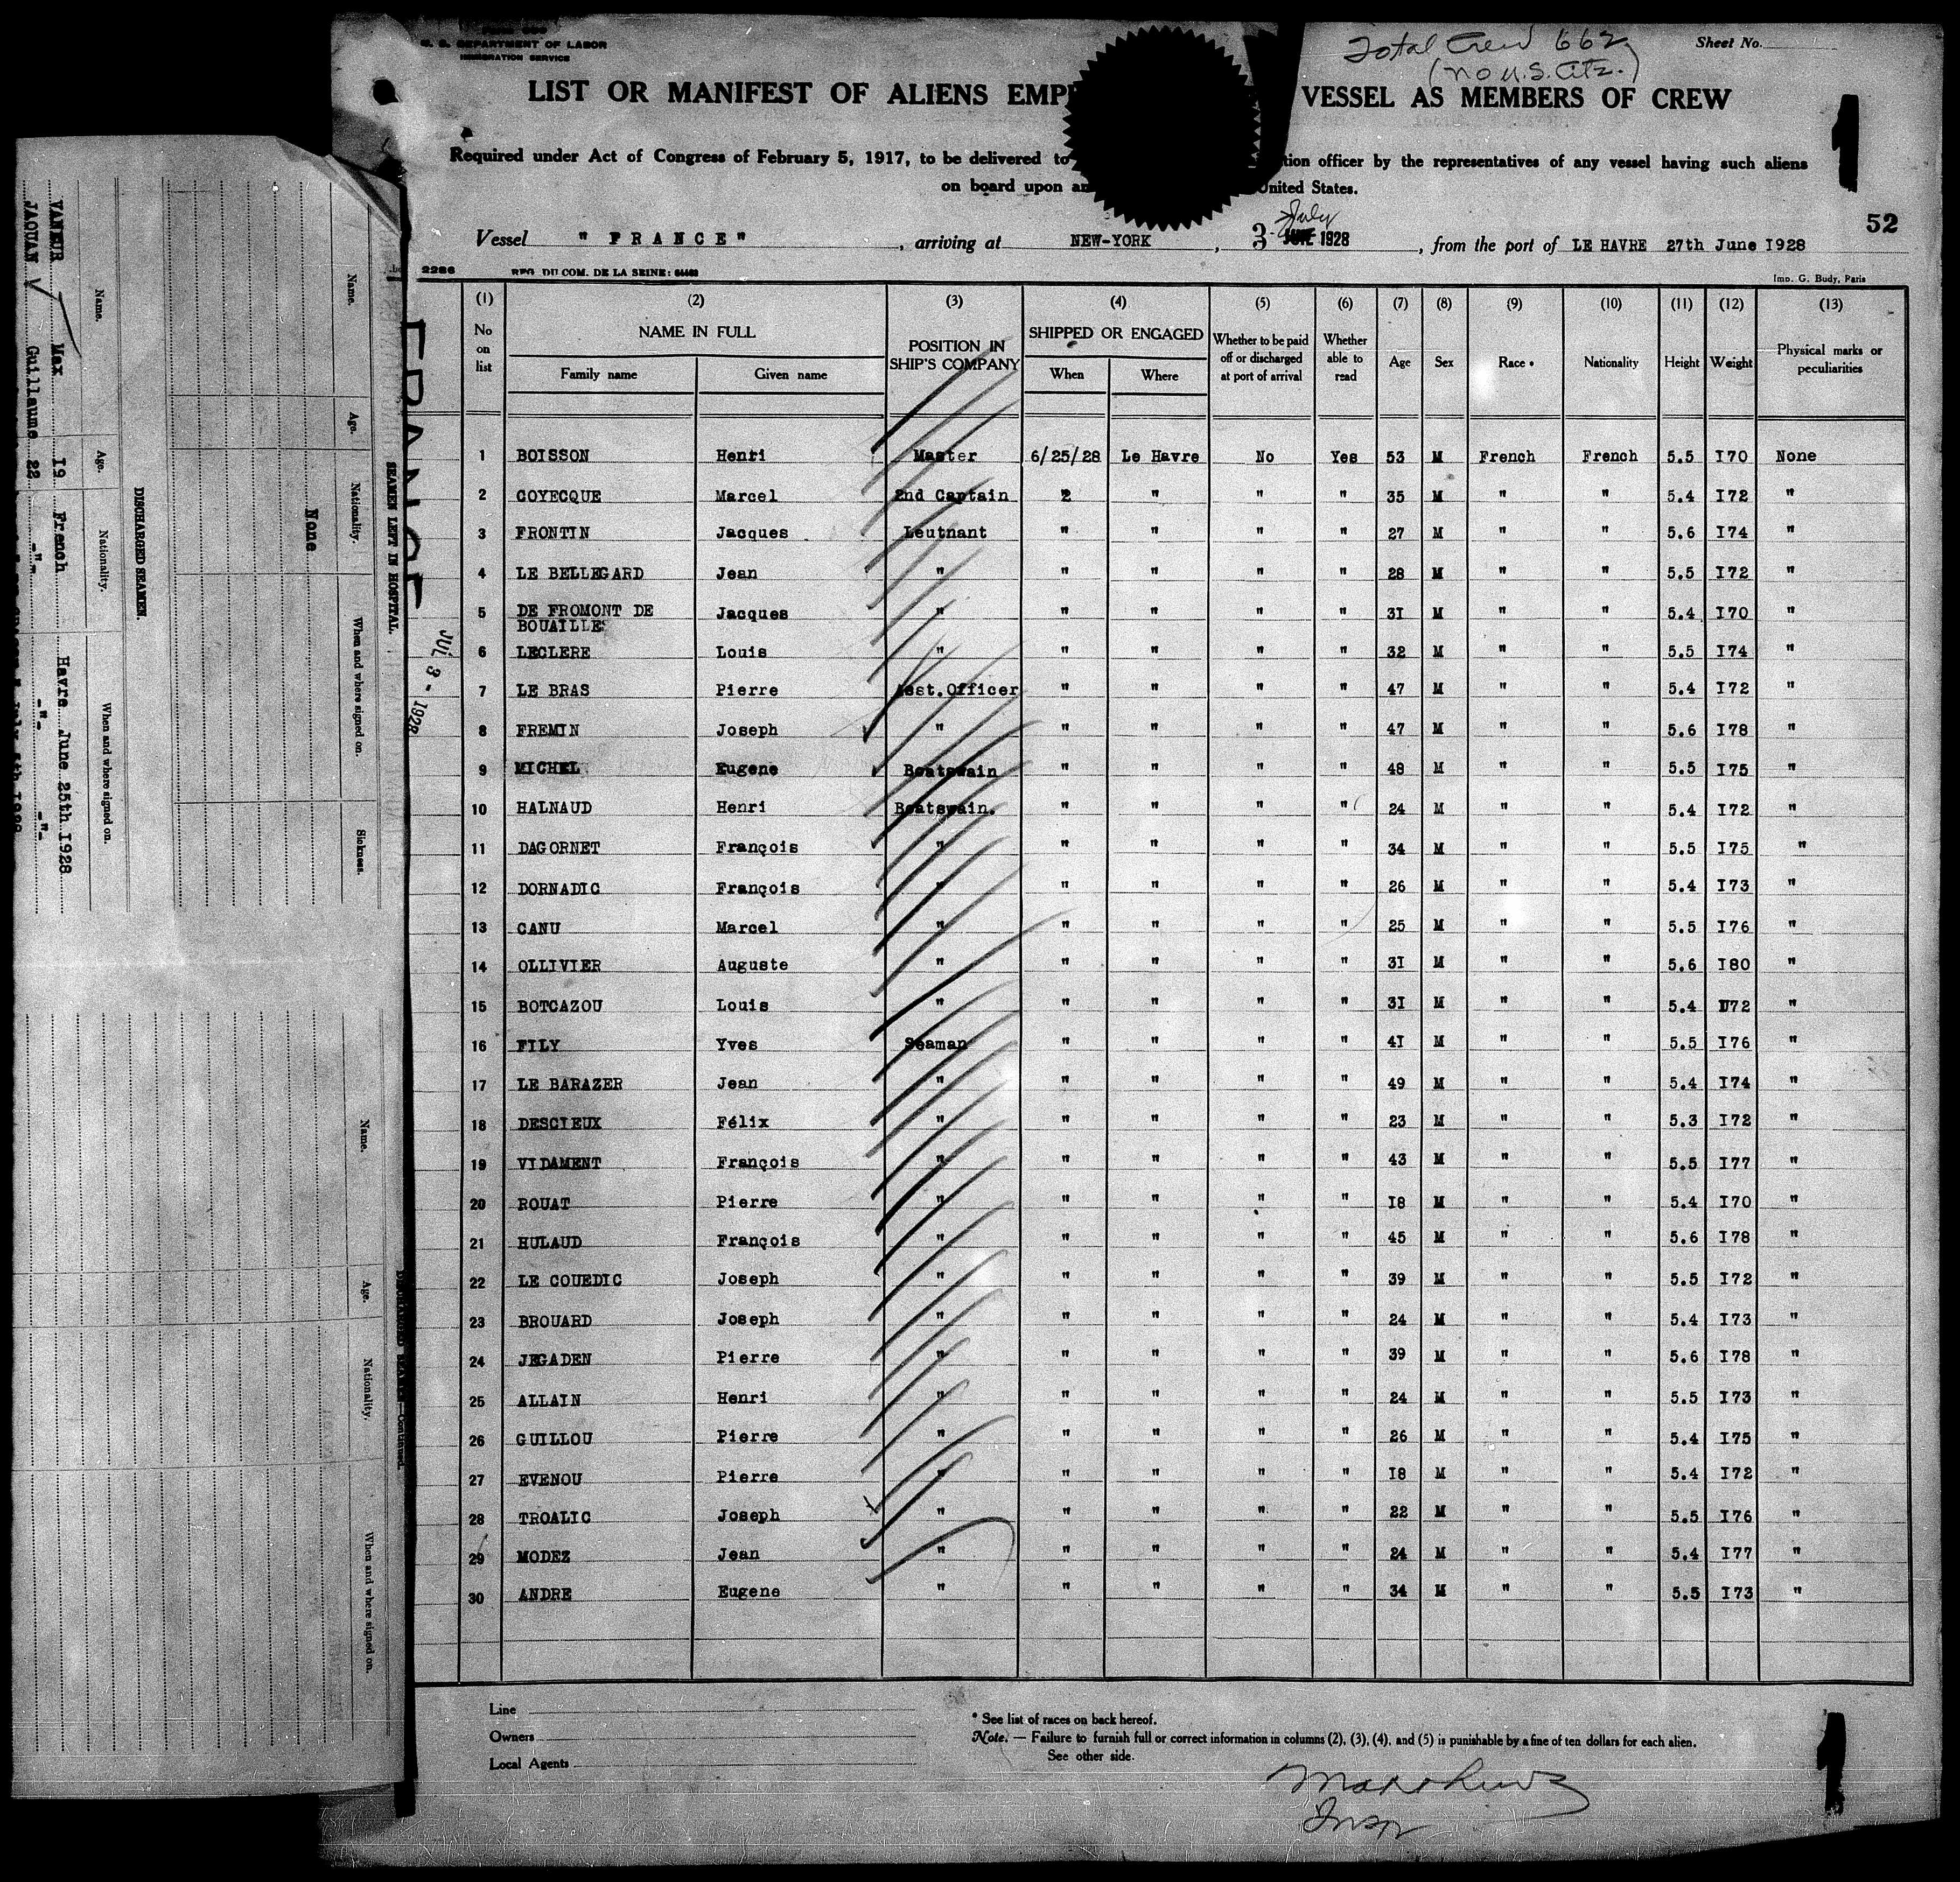 U. S. DEPARTMENT OF LABOR
IMMIGRATION SERVICE
Total Crew 662
(no U.S. Citz.)
Sheet No.
LIST OR MANIFEST OF ALIENS EMP VESSEL AS MEMBERS OF CREW
1
Required under Act of Congress of February 5, 1917, to be delivered to tion officer by the representatives of any vessel having such aliens
on board upon an United States.
52
July
Vessel " FRANCE" , arriving at NEW-YORK , 3 JUNE 1928 , from the port of LE HAVRE 27th June I928
2286 REG. DU COM. DE LA SEINE: Imp. G. Budy, Paris
(1) (2) (3) (4) (5) (6) (7) (8) (9) (10) (11) (12) (13)
No on list NAME IN FULL POSITION IN SHIP'S COMPANY SHIPPED OR ENGAGED Whether to be paid off or discharged at port of arrival Whether able to read Age Sex Race * Nationality Height Weight Physical marks or peculiarities
Family name Given name When Where
1 BOISSON Henri Master 6/25/28 Le Havre No Yes 53 M French French 5.5 I70 None
2 COYECQUE Marcel 2nd Captain 2 " " " 35 M " " 5.4 I72 "
3 FRONTIN Jacques Leutnant " " " " 27 M " " 5.6 I74 "
4 LE BELLEGARD Jean " " " " " 28 M " " 5.5 I72 "
5 DE FROMONT DE Jacques " " " " " 3I M " " 5.4 I70 "
BOUAILLE
6 LECLERE Louis " " " " " 32 M " " 5.5 I74 "
7 LE BRAS Pierre Asst.Officer " " " " 47 M " " 5.4 I72 "
8 FREMIN Joseph " " " " " 47 M " " 5.6 I78 "
9 MICHEL Eugene Boatswain " " " " 48 M " " 5.5 I75 "
10 HALNAUD Henri Boatswain. " " " " 24 M " " 5.4 I72 "
11 DAGORNET François " " " " " 34 M " " 5.5 I75 "
12 DORNADIC François " " " " " 26 M " " 5.4 I73 "
13 CANU Marcel " " " " " 25 M " " 5.5 I76 "
14 OLLIVIER Auguste " " " " " 3I M " " 5.6 I80 "
15 BOTCAZOU Louis " " " " " 3I M " " 5.4 I72 "
16 FILY Yves Seaman " " " " 4I M " " 5.5 I76 "
17 LE BARAZER Jean " " " " " 49 M " " 5.4 I74 "
18 DESCIEUX Félix " " " " " 23 M " " 5.3 I72 "
19 VIDAMENT François " " " " " 43 M " " 5.5 I77 "
20 ROUAT Pierre " " " " " I8 M " " 5.4 I70 "
21 HULAUD François " " " " " 45 M " " 5.6 I78 "
22 LE COUEDIC Joseph " " " " " 39 M " " 5.5 I72 "
23 BROUARD Joseph " " " " " 24 M " " 5.4 I73 "
24 JEGADEN Pierre " " " " " 39 M " " 5.6 I78 "
25 ALLAIN Henri " " " " " 24 M " " 5.5 I73 "
26 GUILLOU Pierre " " " " " 26 M " " 5.4 I75 "
27 EVENOU Pierre " " " " " I8 M " " 5.4 I72 "
28 TROALIC Joseph " " " " " 22 M " " 5.5 I76 "
29 MODEZ Jean " " " " " 24 M " " 5.4 I77 "
30 ANDRE Eugene " " " " " 34 M " " 5.5 I73 "
Line
Owners
Local Agents
* See list of races on back hereof.
Note. — Failure to furnish full or correct information in columns (2), (3), (4), and (5) is punishable by a fine of ten dollars for each alien.
See other side.
Insp
1
FRANCE
JUL 3 - 1928
SEAMEN LEFT IN HOSPITAL.
Name. Age. Nationality. When and where signed on. Sickness.
None
DISCHARGED SEAMEN.
Name. Age. Nationality. When and where signed on.
VANNIER Max I9 French Havre June 25th I928
JAQUAN Guillaume 22 -"- -"- -"-
DISCHARGED SEAMEN—Continued.
Name. Age. Nationality. When and where signed on.